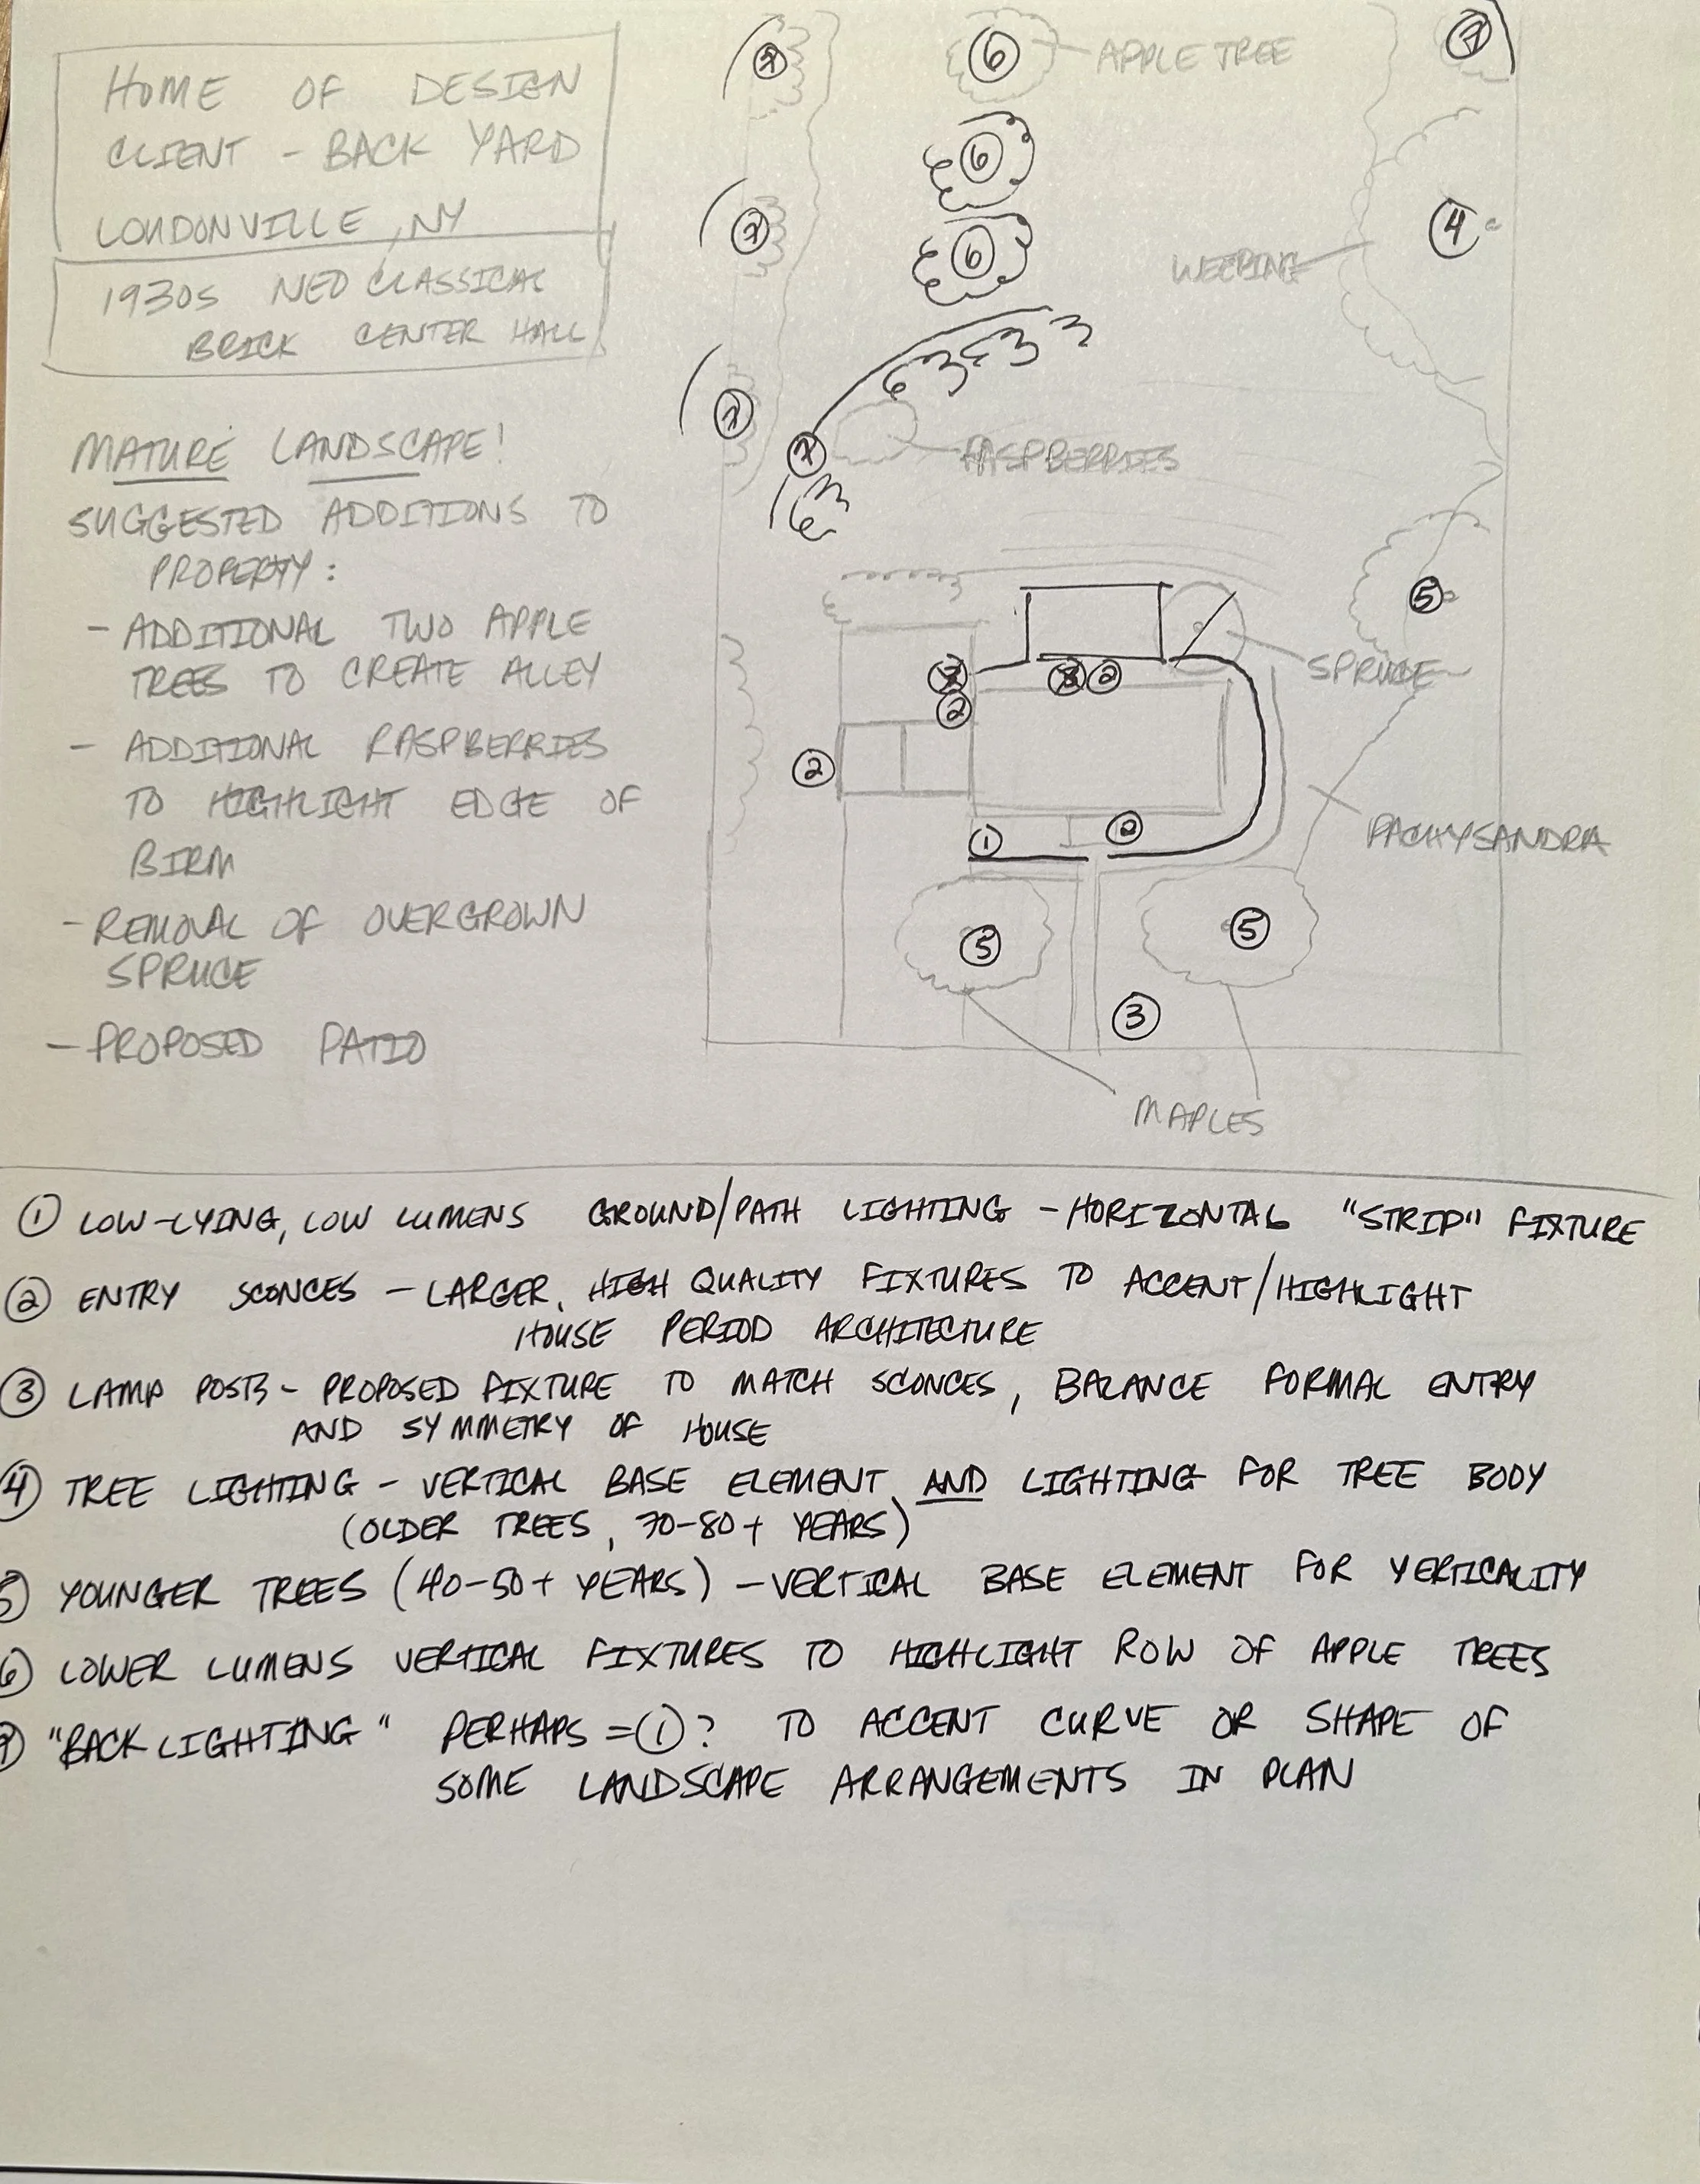 HOME OF DESIGN
CLIENT - BACK YARD
LOUDONVILLE, NY
1930s NEO CLASSICAL
BRICK CENTER HALL
MATURE LANDSCAPE!
SUGGESTED ADDITIONS TO
PROPERTY:
- ADDITIONAL TWO APPLE
TREES TO CREATE ALLEY
- ADDITIONAL RASPBERRIES
TO HIGHLIGHT EDGE OF
BIRM
- REMOVAL OF OVERGROWN
SPRUCE
- PROPOSED PATIO
7
6
APPLE TREE
7
6
7
4
6
WEEPING
7
7
RASPBERRIES
5
SPRUCE
2
2
2
1
2
PACHYSANDRA
5
5
3
MAPLES
① LOW-LYING, LOW LUMENS GROUND/PATH LIGHTING - HORIZONTAL "STRIP" FIXTURE
② ENTRY SCONCES - LARGER, HIGH QUALITY FIXTURES TO ACCENT/HIGHLIGHT
HOUSE PERIOD ARCHITECTURE
③ LAMP POSTS - PROPOSED FIXTURE TO MATCH SCONCES, BALANCE FORMAL ENTRY
AND SYMMETRY OF HOUSE
④ TREE LIGHTING - VERTICAL BASE ELEMENT AND LIGHTING FOR TREE BODY
(OLDER TREES, 70-80+ YEARS)
⑤ YOUNGER TREES (40-50+ YEARS) - VERTICAL BASE ELEMENT FOR VERTICALITY
⑥ LOWER LUMENS VERTICAL FIXTURES TO HIGHLIGHT ROW OF APPLE TREES
⑦ "BACK LIGHTING" PERHAPS = ①? TO ACCENT CURVE OR SHAPE OF
SOME LANDSCAPE ARRANGEMENTS IN PLAN